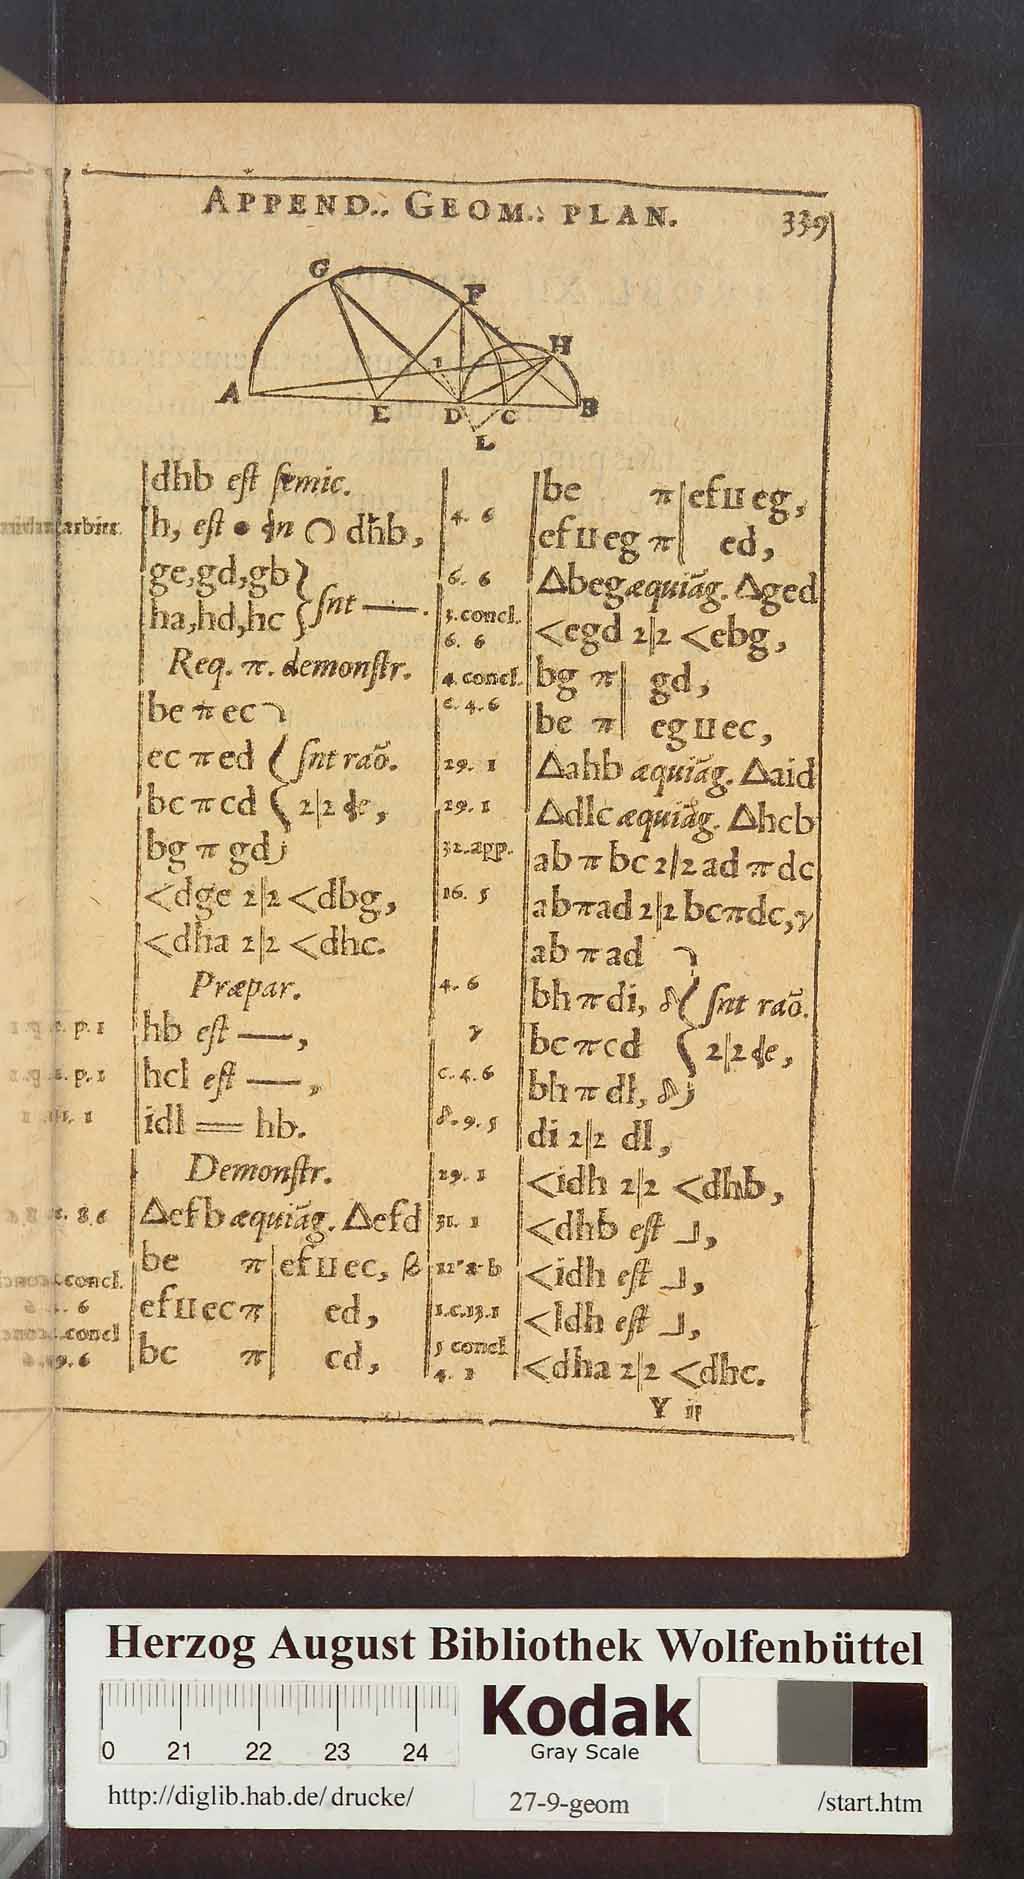 APPEND.. GEOM.: PLAN.
339
G
F
H
A
E
D
C
B
L
dhb est semic.
arbitr.
h, est • in ◠ dhb,
ge, gd, gb }
ha, hd, hc { snt —.
Req. π. demonstr.
be π ec
ec π ed { snt raõ.
bc π cd { 2|2 de,
bg π gd
<dge 2|2 <dbg,
<dha 2|2 <dhc.
Præpar.
p. 1
hb est —,
p. 1
hcl est —,
1
idl = hb.
Demonstr.
8.6
△efb æquiãg. △efd
be π | ef ⊔ ec, β
concl.
6
ef ⊔ ec π | ed,
concl
9.6
bc π | cd,
4. 6
be π | ef ⊔ eg,
ef ⊔ eg π | ed,
6. 6
△beg æquiãg. △ged
3.concl.
6. 6
<egd 2|2 <ebg,
4 concl.
bg π | gd,
c. 4. 6
be π | eg ⊔ ec,
29. 1
△ahb æquiãg. △aid
29. 1
△dlc æquiãg. △hcb
32. app.
ab π bc 2|2 ad π dc
16. 5
ab π ad 2|2 bc π dc, γ
ab π ad
4. 6
bh π di, δ { snt raõ.
γ
bc π cd { 2|2 de,
c. 4. 6
bh π dl, δ
δ. 9. 5
di 2|2 dl,
29. 1
<idh 2|2 <dhb,
31. 3
<dhb est ⅃,
12 a b
<idh est ⅃,
1.c.13.1
<ldh est ⅃,
5 concl
4. 1
<dha 2|2 <dhc.
Y iij
Herzog August Bibliothek Wolfenbüttel
0 21 22 23 24
Kodak
Gray Scale
http://diglib.hab.de/drucke/
27-9-geom
/start.htm